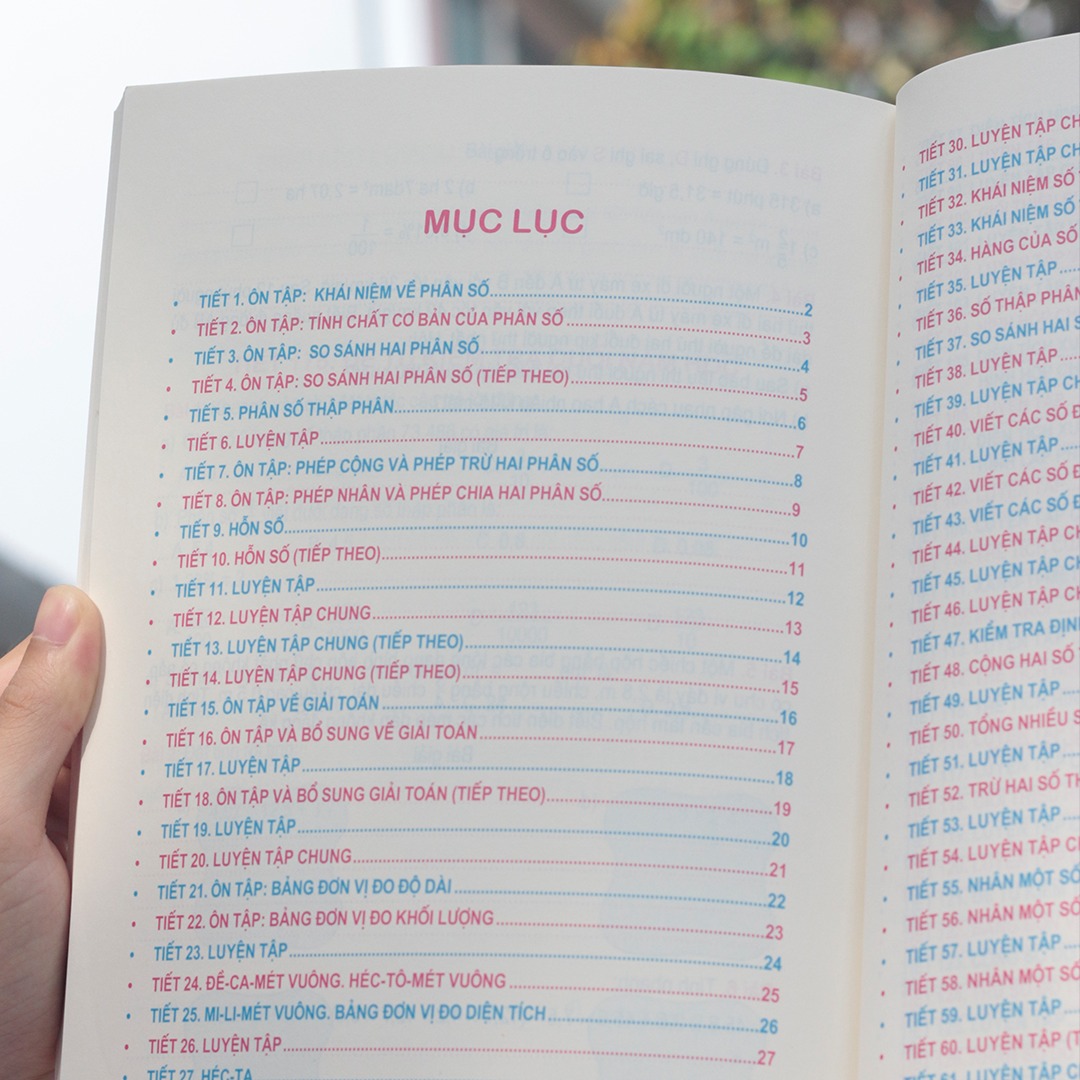 MỤC LỤC
• TIẾT 1. ÔN TẬP: KHÁI NIỆM VỀ PHÂN SỐ.....2
• TIẾT 2. ÔN TẬP: TÍNH CHẤT CƠ BẢN CỦA PHÂN SỐ.....3
• TIẾT 3. ÔN TẬP: SO SÁNH HAI PHÂN SỐ.....4
• TIẾT 4. ÔN TẬP: SO SÁNH HAI PHÂN SỐ (TIẾP THEO).....5
• TIẾT 5. PHÂN SỐ THẬP PHÂN.....6
• TIẾT 6. LUYỆN TẬP.....7
• TIẾT 7. ÔN TẬP: PHÉP CỘNG VÀ PHÉP TRỪ HAI PHÂN SỐ.....8
• TIẾT 8. ÔN TẬP: PHÉP NHÂN VÀ PHÉP CHIA HAI PHÂN SỐ.....9
• TIẾT 9. HỖN SỐ.....10
• TIẾT 10. HỖN SỐ (TIẾP THEO).....11
• TIẾT 11. LUYỆN TẬP.....12
• TIẾT 12. LUYỆN TẬP CHUNG.....13
• TIẾT 13. LUYỆN TẬP CHUNG (TIẾP THEO).....14
• TIẾT 14. LUYỆN TẬP CHUNG (TIẾP THEO).....15
• TIẾT 15. ÔN TẬP VỀ GIẢI TOÁN.....16
• TIẾT 16. ÔN TẬP VÀ BỔ SUNG VỀ GIẢI TOÁN.....17
• TIẾT 17. LUYỆN TẬP.....18
• TIẾT 18. ÔN TẬP VÀ BỔ SUNG GIẢI TOÁN (TIẾP THEO).....19
• TIẾT 19. LUYỆN TẬP.....20
• TIẾT 20. LUYỆN TẬP CHUNG.....21
• TIẾT 21. ÔN TẬP: BẢNG ĐƠN VỊ ĐO ĐỘ DÀI.....22
• TIẾT 22. ÔN TẬP: BẢNG ĐƠN VỊ ĐO KHỐI LƯỢNG.....23
• TIẾT 23. LUYỆN TẬP.....24
• TIẾT 24. ĐỀ-CA-MÉT VUÔNG. HÉC-TÔ-MÉT VUÔNG.....25
• TIẾT 25. MI-LI-MÉT VUÔNG. BẢNG ĐƠN VỊ ĐO DIỆN TÍCH.....26
• TIẾT 26. LUYỆN TẬP.....27
• TIẾT 27. HÉC-TA
• TIẾT 30. LUYỆN TẬP CH
• TIẾT 31. LUYỆN TẬP CH
• TIẾT 32. KHÁI NIỆM SỐ
• TIẾT 33. KHÁI NIỆM SỐ
• TIẾT 34. HÀNG CỦA SỐ
• TIẾT 35. LUYỆN TẬP.....
• TIẾT 36. SỐ THẬP PHÂN
• TIẾT 37. SO SÁNH HAI S
• TIẾT 38. LUYỆN TẬP.....
• TIẾT 39. LUYỆN TẬP CH
• TIẾT 40. VIẾT CÁC SỐ Đ
• TIẾT 41. LUYỆN TẬP.....
• TIẾT 42. VIẾT CÁC SỐ Đ
• TIẾT 43. VIẾT CÁC SỐ Đ
• TIẾT 44. LUYỆN TẬP CH
• TIẾT 45. LUYỆN TẬP CH
• TIẾT 46. LUYỆN TẬP CH
• TIẾT 47. KIỂM TRA ĐỊN
• TIẾT 48. CỘNG HAI SỐ
• TIẾT 49. LUYỆN TẬP.....
• TIẾT 50. TỔNG NHIỀU S
• TIẾT 51. LUYỆN TẬP.....
• TIẾT 52. TRỪ HAI SỐ TH
• TIẾT 53. LUYỆN TẬP.....
• TIẾT 54. LUYỆN TẬP C
• TIẾT 55. NHÂN MỘT SỐ
• TIẾT 56. NHÂN MỘT SỐ
• TIẾT 57. LUYỆN TẬP.....
• TIẾT 58. NHÂN MỘT SỐ
• TIẾT 59. LUYỆN TẬP.....
• TIẾT 60. LUYỆN TẬP (T
TIẾT 61. LUYỆN TẬP CH